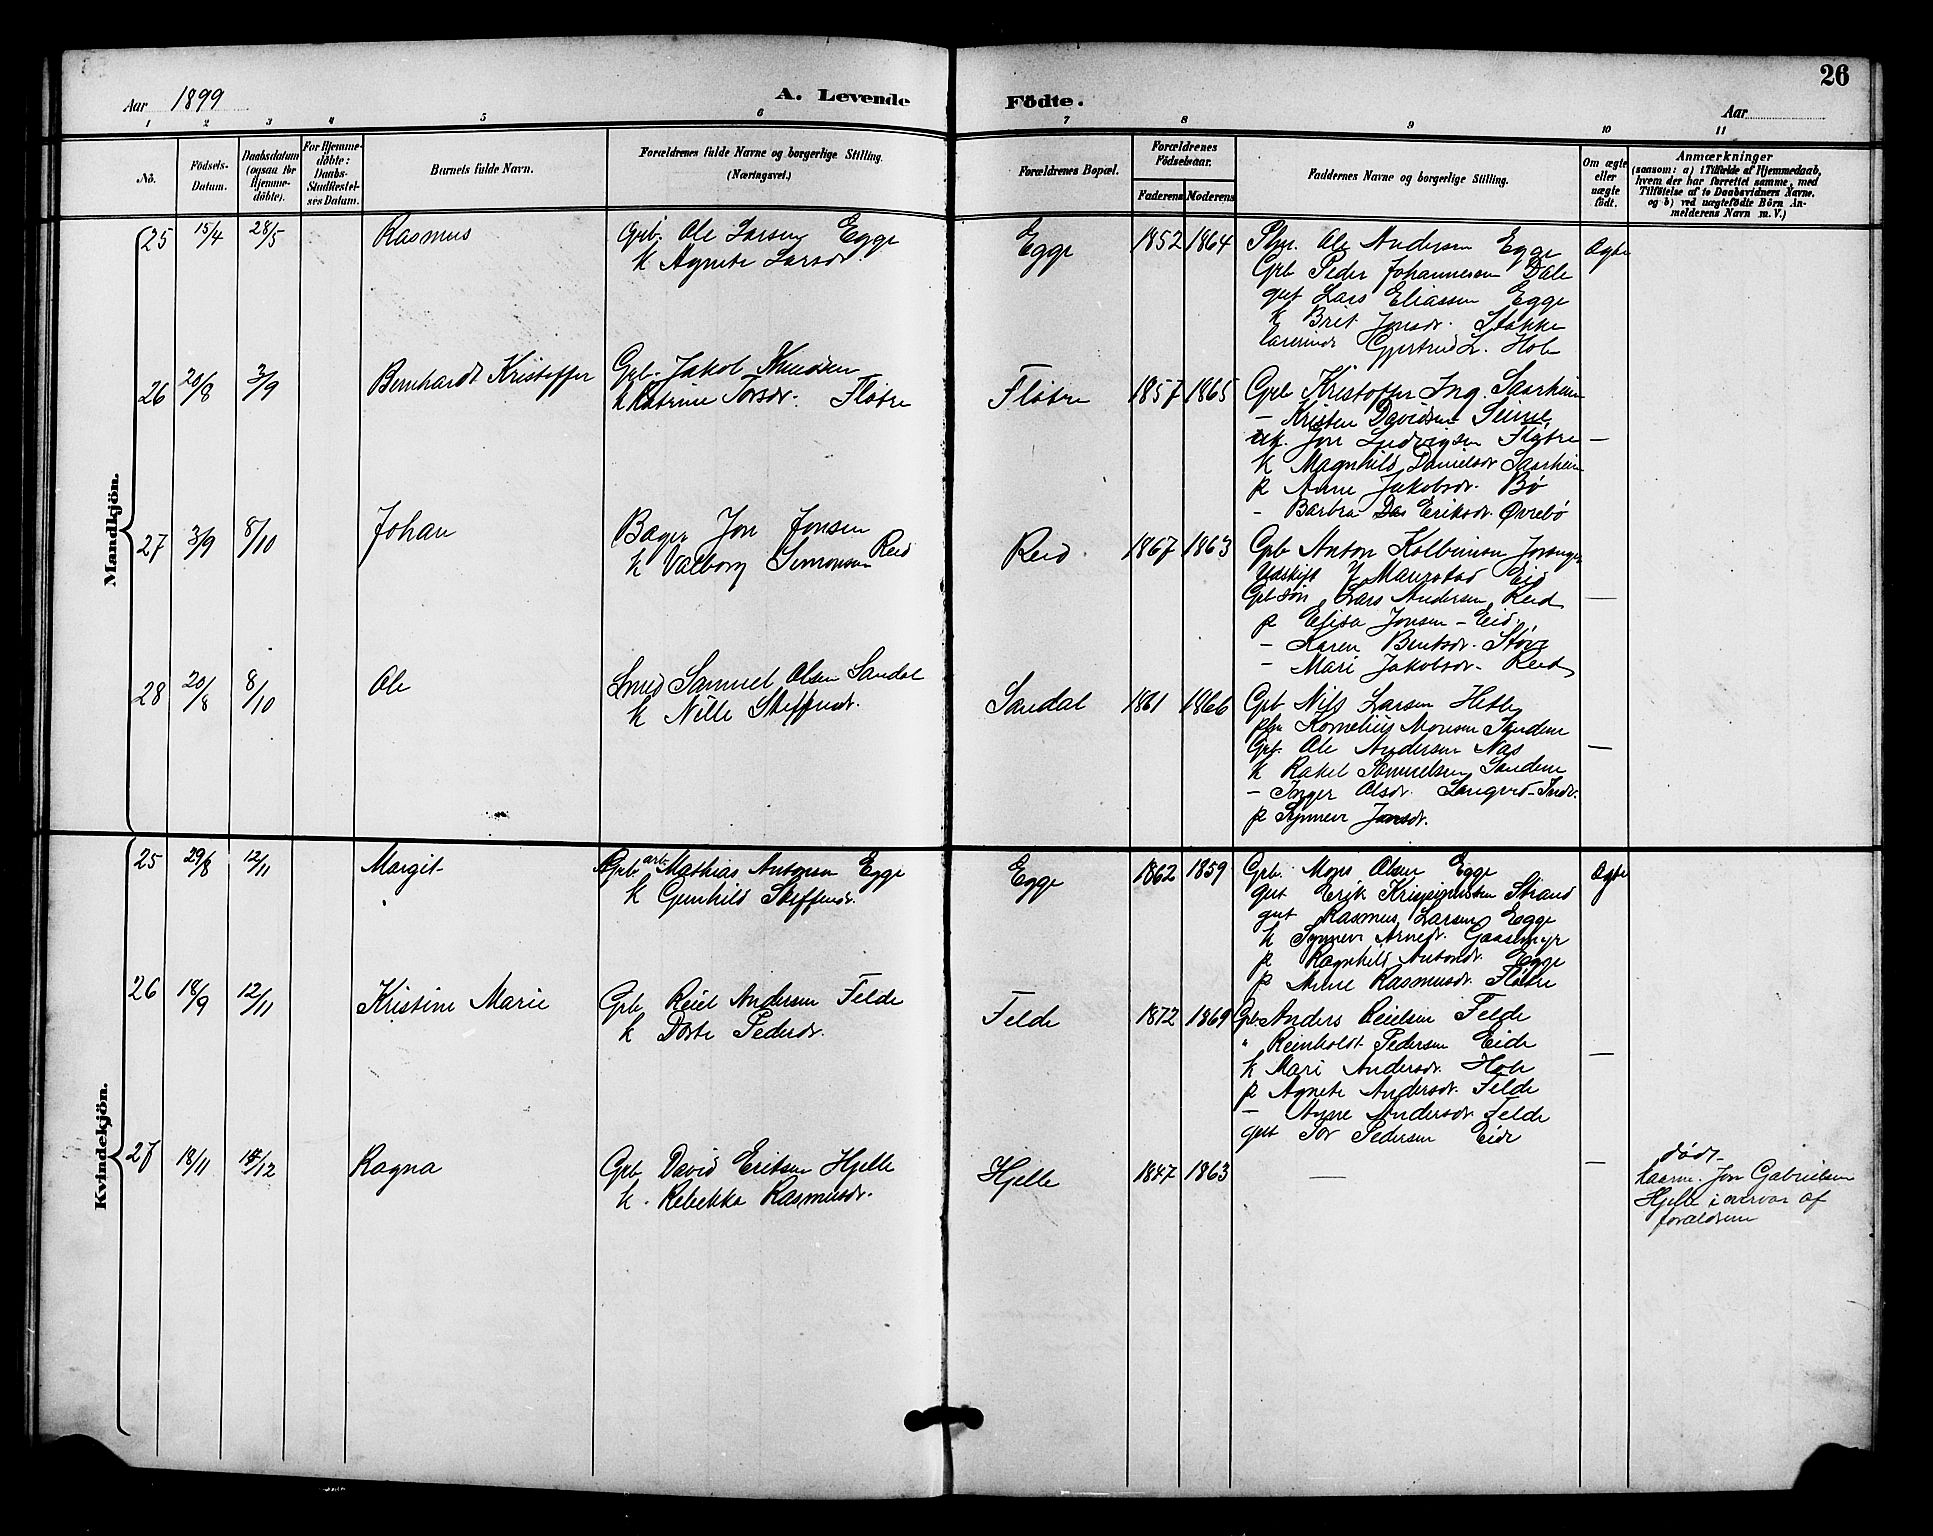 26
Aar 1899
A. Levende Födte.
Aar
1 2 3 4 5 6 7 8 9 10 11
Nö.
Födsels-Datum.
Daabsdatum (ogsaa for Hjemmedöbte).
For Hjemmedöbte: Daabs-Stadfæstelses Datum.
Barnets fulde Navn.
Forældrenes fulde Navne og borgerlige Stilling. (Næringsvei.)
Forældrenes Bopæl.
Forældrenes Födselsaar.
Faderens Moderens
Faddernes Navne og borgerlige Stilling.
Om ægte eller uægte födt.
Anmærkninger
(saasom: a) i Tilfælde af Hjemmedaab, hvem der har forrettet samme, med Tilföielse af to Daabsvidners Navne. og b) ved uægtefödte Börn Anmelderens Navn m. V.)
Mandkjön.
25 15/4 28/5 Rasmus
Grb. Ole Larsen Egge
k Agnete Larsdr.
Egge 1852 1864
Ole Andersen Egge
Grb Peder Johannesen Dale
gut Lars Eliassen Egge
k Brit Jonsdr. Stokke
Gjertrud L. Hole
Ægte
26 20/8 3/9 Bernhardt Kristoffer
Grb. Jakob Knudsen
k Katrine Torsdr. Fløtre
Fløtre 1857 1865
Grb Kristoffer Ing. Saarheim
— Kristen Davidsen Seime
Jon Ludvigsen Fløtre
k Magnhild Danielsdr Saarheim
p Anne Jakobsdr. Bø
- Barbra Eriksdr. Øvrebö
—
27 3/9 8/10 Johan
Bager Jon Jonsen
k Valborg Simonsen Reed
Reed 1867 1863
Grb Anton Kolbeinson
Maurstad Eid
Grb søn Lars Andersen Reed
p Elisa Jonsen - Eid
- Karen Bentsdr.
- Mari Jakobsdr. Reed
—
28 20/8 8/10 Ole
Smed Samuel Olsen Sandal
k Nille Steffensdr.
Sandal 1861 1866
Grb Nils Larsen Hetle
Kornelius Monsen Sandene
Grb. Ole Andersen Nos
k Rakel Samuelsen Sandene
- Inger Olsdr.
p Synneve Jonsdr.
—
Kvindekjön.
25 29/8 12/11 Margit
Grb arb Mathias Antonsen Egge
k Gunhild Steffensdr.
Egge 1862 1859
Grb. Mons Olsen Egge
gut Erik Strand
gut Rasmus Larsen Egge
k Synneve Arnedr. Gaasemyr
p Ragnhild Antondr. Egge
p Anne Rasmusdr. Fløtre
Ægte
26 18/9 12/11 Kristine Marie
Grb Reiel Andersen Felde
k Dorte Pedersdr.
Felde 1872 1869
Grb. Anders Reielsen Felde
" Reinholdt Pedersen Eide
k Mari Andersdr. Hole
p Agnete Andersdr. Felde
— Anne Andersdr Felde
gut Tor Pedersen Eide
—
27 18/11 /12 Ragna
Grb David Eriksen Hjelle
k. Rebekka Rasmusdr.
Hjelle 1847 1863
—
—
død
Jon Gabrielsen
Hjelle i overvær af
forældrene